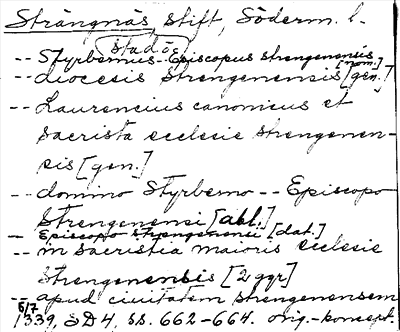 Strängnäs, stift, Söderm. l.
stad öc
-- Styrbernus Episcopus strengenensis [nom.]
-- diocesis Strengenensis [gen.]
-- Laurencius canonicus et
sacrista ecclesie strengenen-
sis [gen.]
-- domino Styrberno -- Episcopo
Strengenensi [abl.]
-- Episcopo strengenensi [dat.]
-- in sacristia maioris ecclesie
strengenensis [2 ggr]
-- apud ciuitatem strengenensem
6/7 1339, SD 4, ss. 662-664. orig.-koncept.